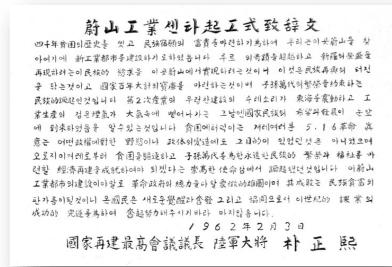 蔚山工業센타起工式致辞文
四千年貧困의 歷史를 씻고 民族宿願의 富貴를 마련하기 爲하여 우리는 이곳 蔚山을 찾아
여기에 新工業都市를 建設하기로 하였습니다 루르의 奇蹟을 超越하고 新羅의 榮盛을
再現하려는 이 民族的 欲求를 이곳 蔚山에서 實現하려는 것이며 이것은 民族再興의 터전
을 닦는 것이고 國家百年大計의 寶庫를 마련하는 것이며 子孫萬代의 繁榮을 約束하는
民族的 蹶起인 것입니다 第2次産業의 우렁찬 建設의 수레소리가 東海를 震動하고 工
業生産의 검은 煙氣가 大氣속에 뻗어나가는 그날엔 國家民族의 希望과 發展이 눈앞
에 到來하였음을 알 수 있는 것입니다 貧困에 허덕이는 겨레 여러분 5.16革命의 眞
意는 어떤 政權에 對한 野慾이나 政体의 變造에도 그 目的이 있었던 것은 아니었으며
오로지 이 겨레로부터 貧困을 驅逐하고 子孫萬代를 爲한 永遠한 民族的 繁榮과 福祉를 마
련할 經濟再建을 成就하여야 되겠다는 崇高한 使命感에서 蹶起했던 것입니다 이 蔚山
工業都市의 建設이야말로 革命政府의 總力을 다할 象徵的 雄圖이며 그 成敗는 民族貧富의
判가름이 될 것이니 온 國民은 새로운 覺醒과 奮發 그리고 協同으로서 이 世紀的 課業의
成功的 完遂를 爲하여 奮起努力해 주시기 바라 마지않습니다.
1962年2月3日
國家再建最高會議議長 陸軍大將 朴正熙